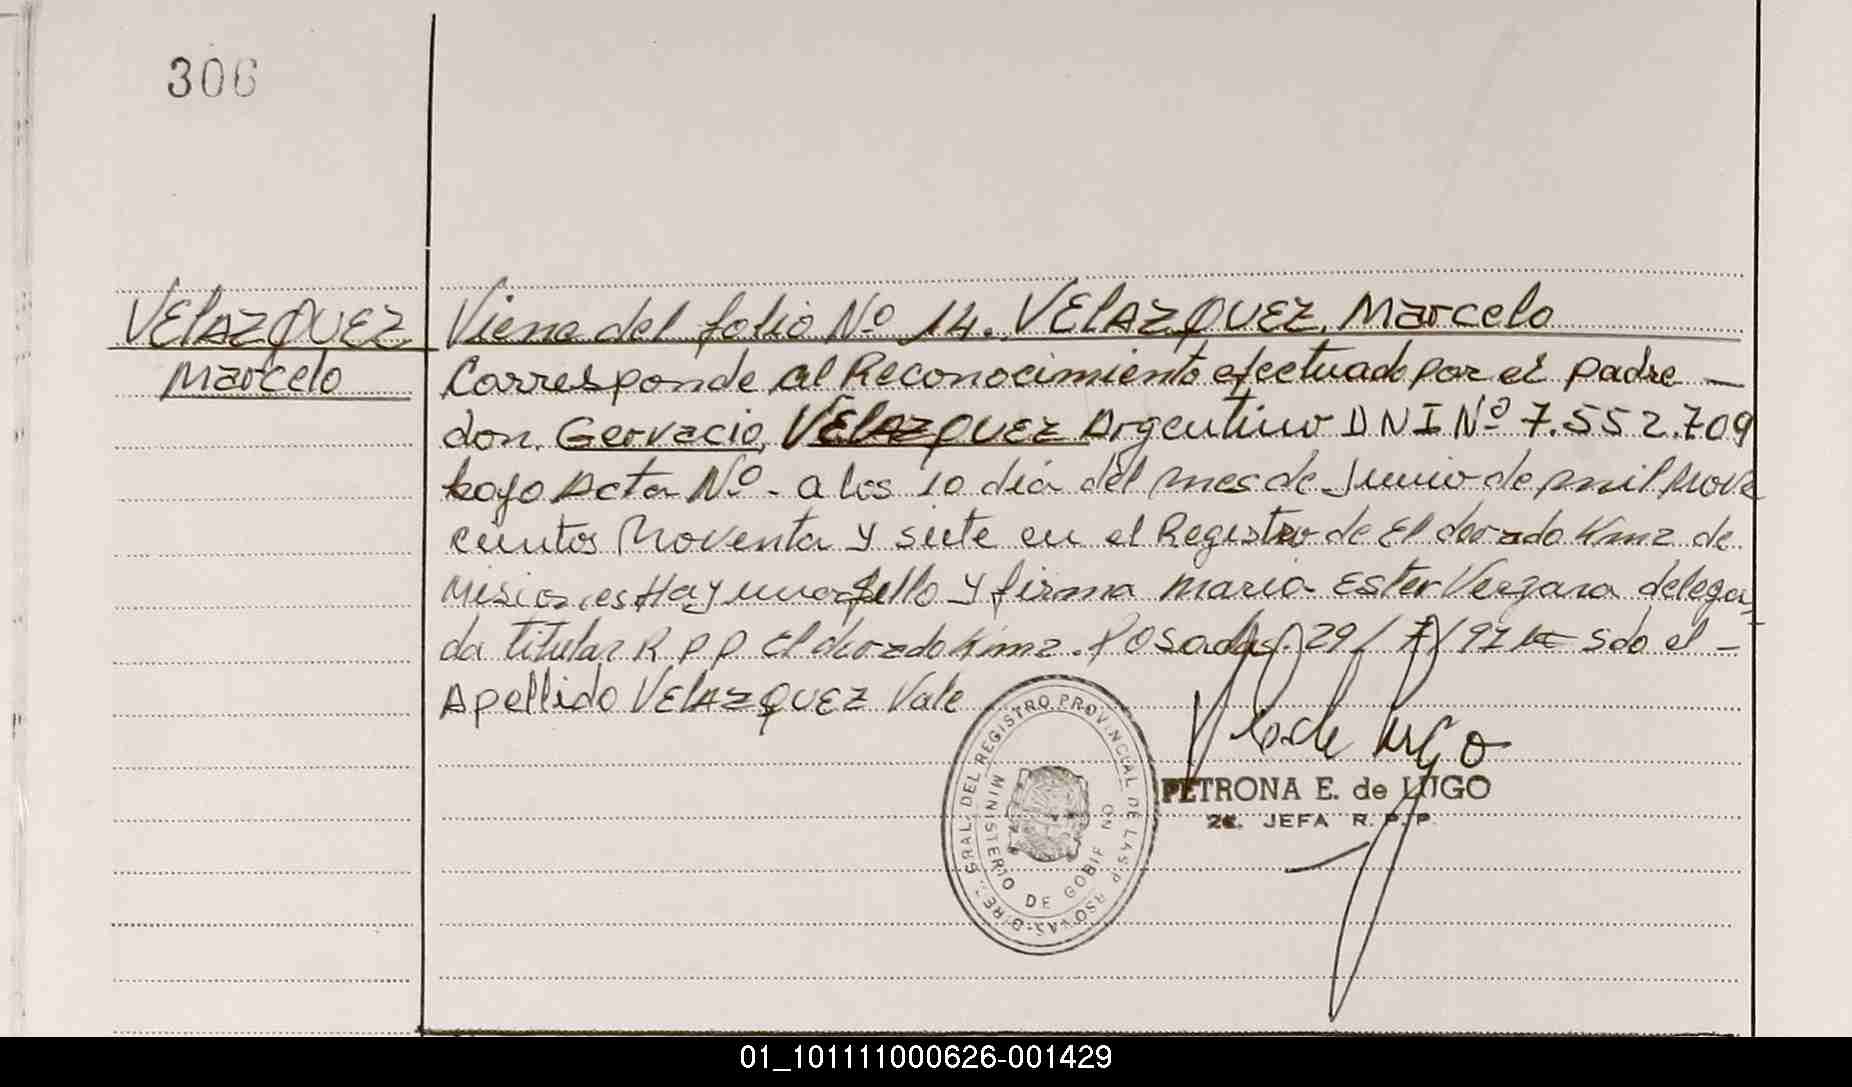 306
VElAZQUEZ
Marcelo
Viene del folio Nº 14. VElAZQUEZ, Marcelo
Corresponde al Reconocimiento efectuado por el padre —
don. Gervacio, VElAZQUEZ Argentino D N I Nº 7.552.709
bajo Acta Nº - a los 10 día del mes de Junio de mil Nove
cientos Noventa y siete en el Registro de El dorado Kmz de
Misiones Hay un sello y firma Maria Ester Vergara delega
da titular R P P El dorado Kmz. Posadas. 29/7/97 Sdo el -
Apellido VElAZQUEZ Vale
PETRONA E. de LUGO
JEFA R. P. P.
DIREC. GRAL. DEL REGISTRO PROVINCIAL DE LAS PERSONAS
MINISTERIO DE GOBIERNO
01_101111000626-001429